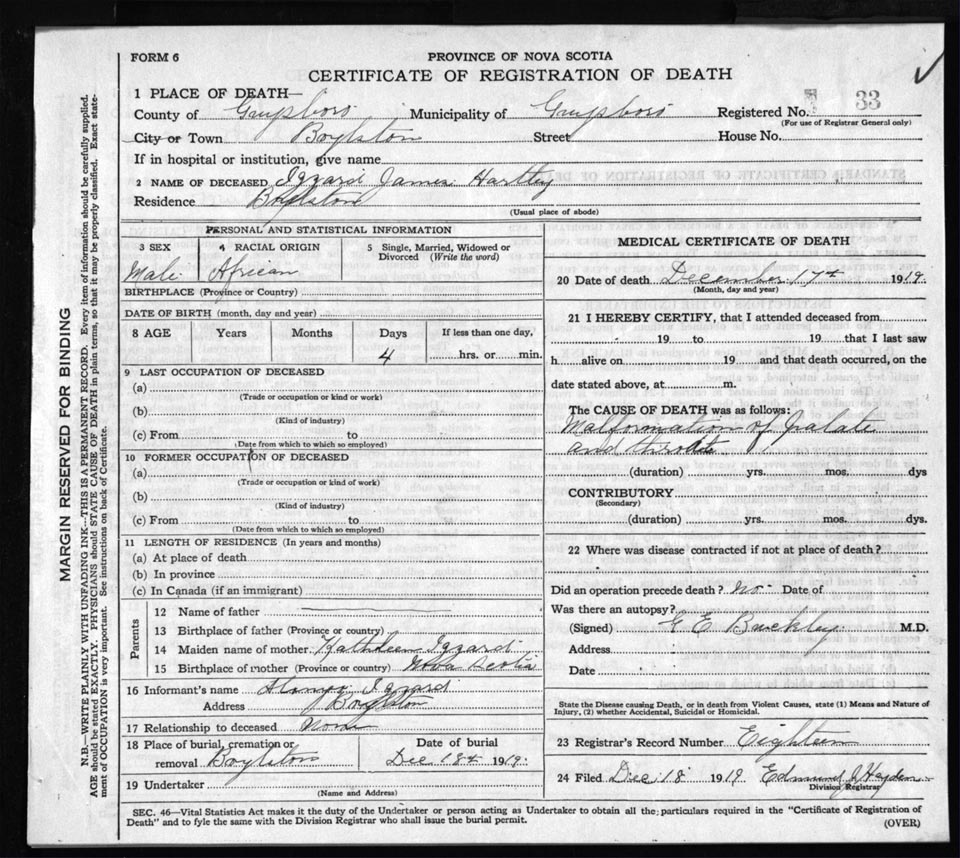 FORM 6
PROVINCE OF NOVA SCOTIA
CERTIFICATE OF REGISTRATION OF DEATH
1 PLACE OF DEATH—
County of Guysboro Municipality of Guysboro Registered No. 33
(For use of Registrar General only)
City or Town Boylston Street House No.
If in hospital or institution, give name
2 NAME OF DECEASED Izzard James Hartley
Residence Boylston
(Usual place of abode)
PERSONAL AND STATISTICAL INFORMATION
3 SEX 4 RACIAL ORIGIN 5 Single, Married, Widowed or
Divorced (Write the word)
Male African
BIRTHPLACE (Province or Country)
DATE OF BIRTH (month, day and year)
8 AGE Years Months Days If less than one day,
4 hrs. or min.
9 LAST OCCUPATION OF DECEASED
(a)
(Trade or occupation or kind or work)
(b)
(Kind of industry)
(c) From to
(Date from which to which so employed)
10 FORMER OCCUPATION OF DECEASED
(a)
(Trade or occupation or kind or work)
(b)
(Kind of industry)
(c) From to
(Date from which to which so employed)
11 LENGTH OF RESIDENCE (In years and months)
(a) At place of death
(b) In province
(c) In Canada (if an immigrant)
Parents
12 Name of father
13 Birthplace of father (Province or country)
14 Maiden name of mother Kathleen Izzard
15 Birthplace of mother (Province or country) Nova Scotia
16 Informant's name Izzard
Address Boylston
17 Relationship to deceased None
18 Place of burial, cremation or Date of burial
removal Boylston Dec 18th 1919.
19 Undertaker
(Name and Address)
MEDICAL CERTIFICATE OF DEATH
20 Date of death December 17th 1919.
(Month, day and year)
21 I HEREBY CERTIFY, that I attended deceased from
19 to 19 that I last saw
h alive on 19 and that death occurred, on the
date stated above, at m.
The CAUSE OF DEATH was as follows:
Malformation of Palate
and throat
(duration) yrs. mos. dys
CONTRIBUTORY
(Secondary)
(duration) yrs. mos. dys.
22 Where was disease contracted if not at place of death?
Did an operation precede death? No Date of
Was there an autopsy?
(Signed) G E Buckley M.D.
Address
Date
State the Disease causing Death, or in death from Violent Causes, state (1) Means and Nature of
Injury, (2) whether Accidental, Suicidal or Homicidal.
23 Registrar's Record Number Eighteen
24 Filed Dec 18 1919 Edmund J Hayden
Division Registrar
SEC. 46—Vital Statistics Act makes it the duty of the Undertaker or person acting as Undertaker to obtain all the particulars required in the "Certificate of Registration of
Death" and to fyle the same with the Division Registrar who shall issue the burial permit.
(OVER)
MARGIN RESERVED FOR BINDING
N.B.—WRITE PLAINLY WITH UNFADING INK—THIS IS A PERMANENT RECORD. Every item of information should be carefully supplied.
AGE should be stated EXACTLY. PHYSICIANS should STATE CAUSE OF DEATH in plain terms, so that it may be properly classified. Exact state-
ment of OCCUPATION is very important. See instructions on back of Certificate.